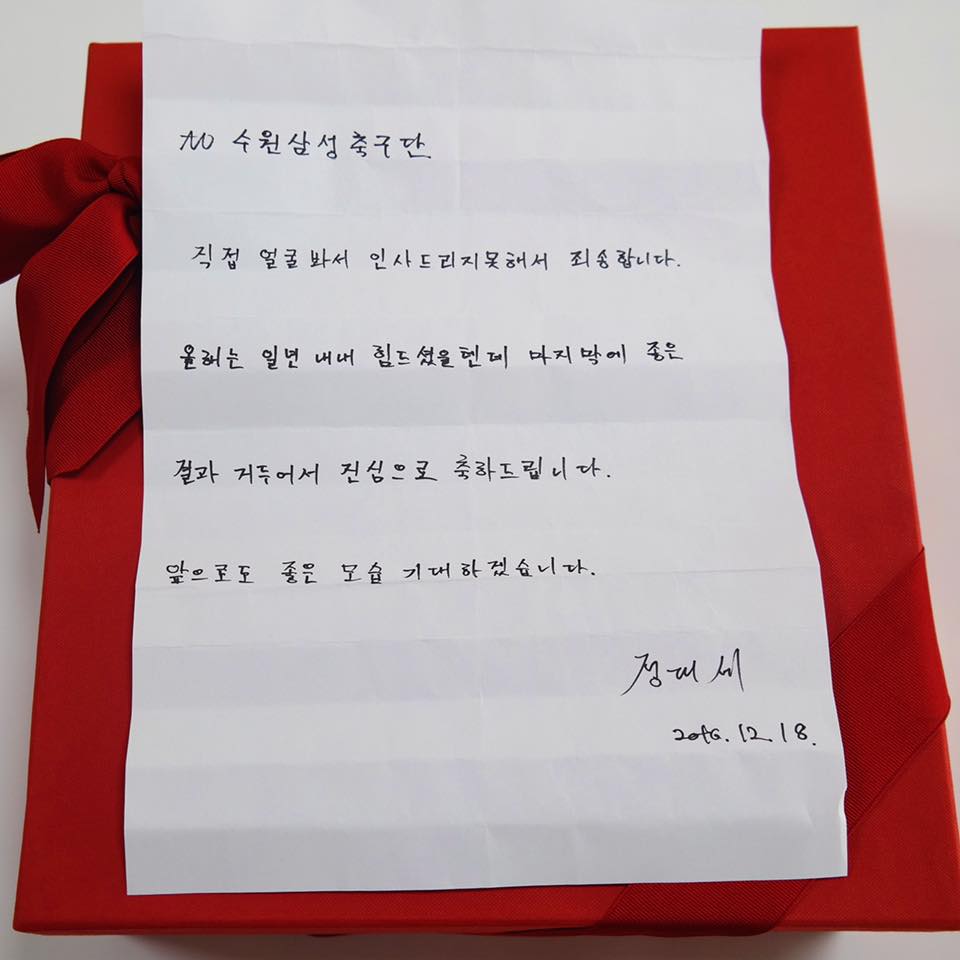 TO 수원삼성축구단
직접 얼굴봐서 인사드리지못해서 죄송합니다.
올해는 일년 내내 힘드셨을텐데 마지막에 좋은
결과 거두어서 진심으로 축하드립니다.
앞으로도 좋은 모습 기대하겠습니다.
정대세
2016.12.18.